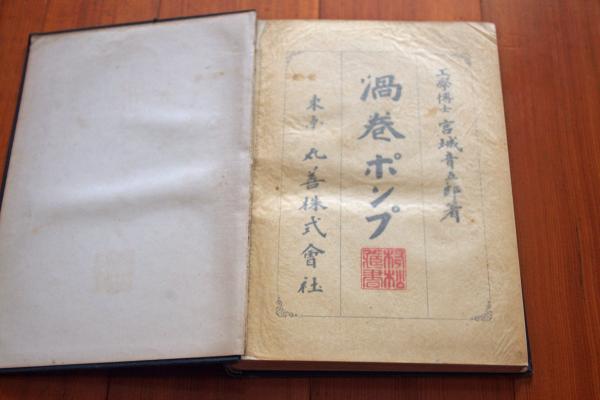 工學博士 宮城音五郎著
渦巻ポンプ
東京 丸善株式會社
藏書